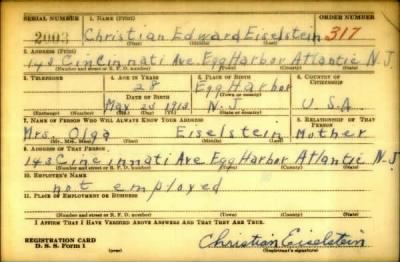 SERIAL NUMBER 1. NAME (Print) ORDER NUMBER
2003 Christian Edward Eiselstein 317
(First) (Middle) (Last)
2. ADDRESS (Print)
143 Cincinnati Ave. Egg Harbor Atlantic N.J.
(Number and street or R. F. D. number) (Town) (County) (State)
3. TELEPHONE 4. AGE IN YEARS 5. PLACE OF BIRTH 6. COUNTRY OF CITIZENSHIP
28 Egg Harbor
DATE OF BIRTH (Town or county)
May 23 1912 N.J. U.S.A.
(Exchange) (Number) (Mo.) (Day) (Yr.) (State or country)
7. NAME OF PERSON WHO WILL ALWAYS KNOW YOUR ADDRESS 8. RELATIONSHIP OF THAT PERSON
Mrs. Olga Eiselstein Mother
(Mr., Mrs., Miss) (First) (Middle) (Last)
9. ADDRESS OF THAT PERSON
143 Cincinnati Ave Egg Harbor Atlantic N.J.
(Number and street or R. F. D. number) (Town) (County) (State)
10. EMPLOYER'S NAME
not employed
11. PLACE OF EMPLOYMENT OR BUSINESS
(Number and street or R. F. D. number) (Town) (County) (State)
I AFFIRM THAT I HAVE VERIFIED ABOVE ANSWERS AND THAT THEY ARE TRUE.
REGISTRATION CARD
D. S. S. Form 1
Christian Eiselstein
(Registrant's signature)